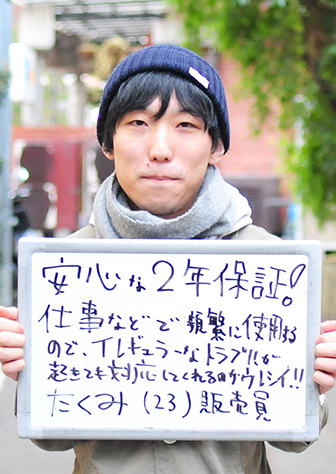 安心な2年保証!
仕事などで頻繁に使用する
ので、イレギュラーなトラブルが
起きても対応してくれるのがウレシイ!!
たくみ(23)販売員